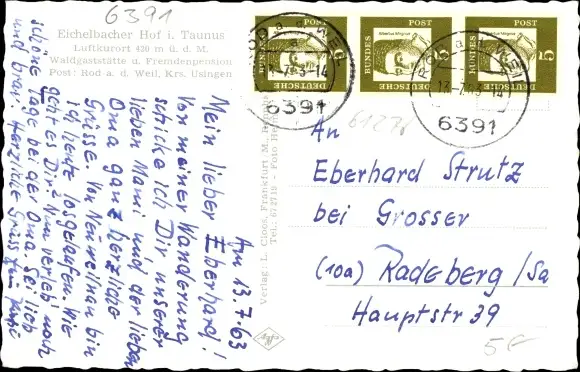 6391
Eichelbacher Hof i. Taunus
Luftkurort 420 m ü. d. M.
Waldgaststätte u. Fremdenpension
Post: Rod a. d. Weil, Krs. Usingen
Am 13.7.63
Mein lieber Eberhard!
Von meiner Wanderung
schicke ich Dir unserer
lieben Mami und der lieben
Oma ganz herzliche
Grüsse. Von Neuweilnau bin
ich heute losgelaufen. Wie
geht es Dir? Nun verleb noch
schöne Tage bei der Oma. Sei lieb
und brav! Herzliche Grüsse
Verlag: L. Cloos, Frankfurt M.
Tel.: 62719 - Foto
DEUTSCHE
BUNDES
POST
5
DEUTSCHE
BUNDES
POST
5
DEUTSCHE
BUNDES
POST
5
ROD a. d. WEIL
13-7.63-14
6391
ROD a. d. WEIL
13-7.63-14
6391
An
Eberhard Strutz
bei Grosser
(10a) Radeberg/Sa
Hauptstr 39
5€